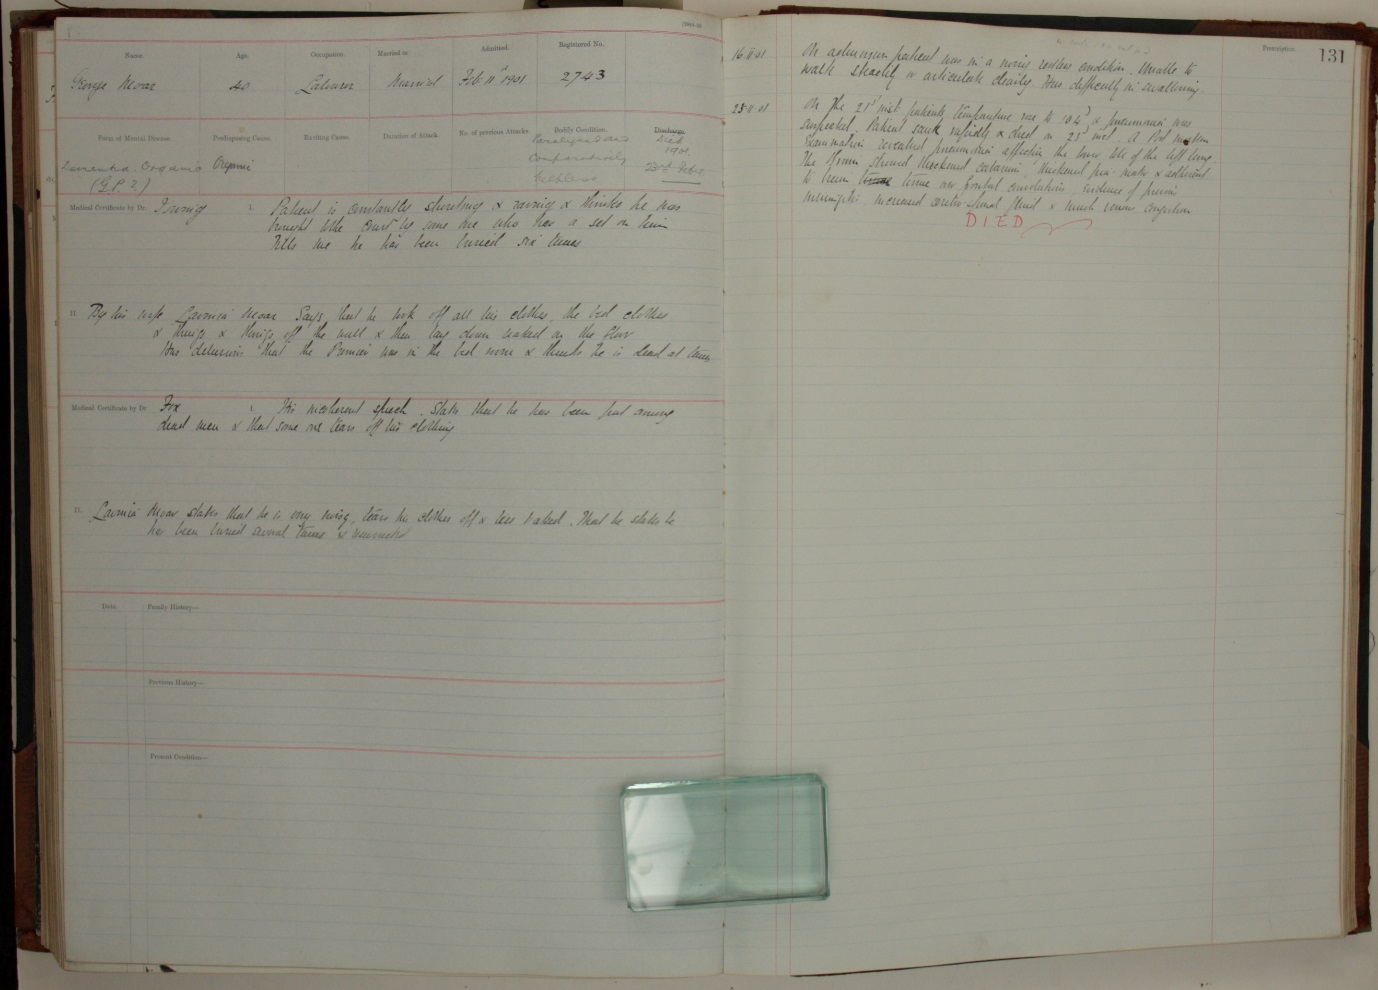 Name.
Age.
Occupation.
Married or
Admitted.
Registered No.
George Moar
40
Labourer
Married
Feb 11th 1901
2743
Form of Mental Disease.
Predisposing Cause.
Exciting Cause.
Duration of Attack.
No. of previous Attacks.
Bodily Condition.
Discharge.
Dementia. Organic
(G.P.?.)
Organic
Paralysed and
Comparatively
helpless
Died
1901.
23rd Febr.
Medical Certificate by Dr. Irving
I. Patient is constantly shouting & raving & thinks he was
brought to the Court by some one who has a set on him
Tells me he has been buried six times
II. By his wife Lavinia Moar Says that he took off all his clothes, the bed clothes
& things & things off the wall & then lay down naked on the floor
Has delusions that the Premier was in the bed room & thinks he is dead at times
Medical Certificate by Dr. Fox
I. His incoherent speech. States that he has been put among
dead men & that some one tears off his clothing
II. Lavinia Moar states that he is very noisy, tears his clothes off & lies naked. That he states he
has been buried several times &
Date.
Family History—
Previous History—
Present Condition—
131
Prescription.
16.II.01
On admission patient was in a noisy restless condition. Unable to
walk steadily or articulate clearly. Has difficulty in swallowing.
23.II.01
On the 21st inst. patients temperature rose to 104° & pneumonia was
suspected. Patient sank rapidly & died on 23rd inst. A Post mortem
examination revealed pneumonia affecting the lower lobe of the left lung.
The brain showed thickened calvarium, thickened pia-mater & adherent
to brain tissue over frontal convolutions, evidence of previous
meningitis, increased cerebro spinal fluid & much venous congestion
DIED